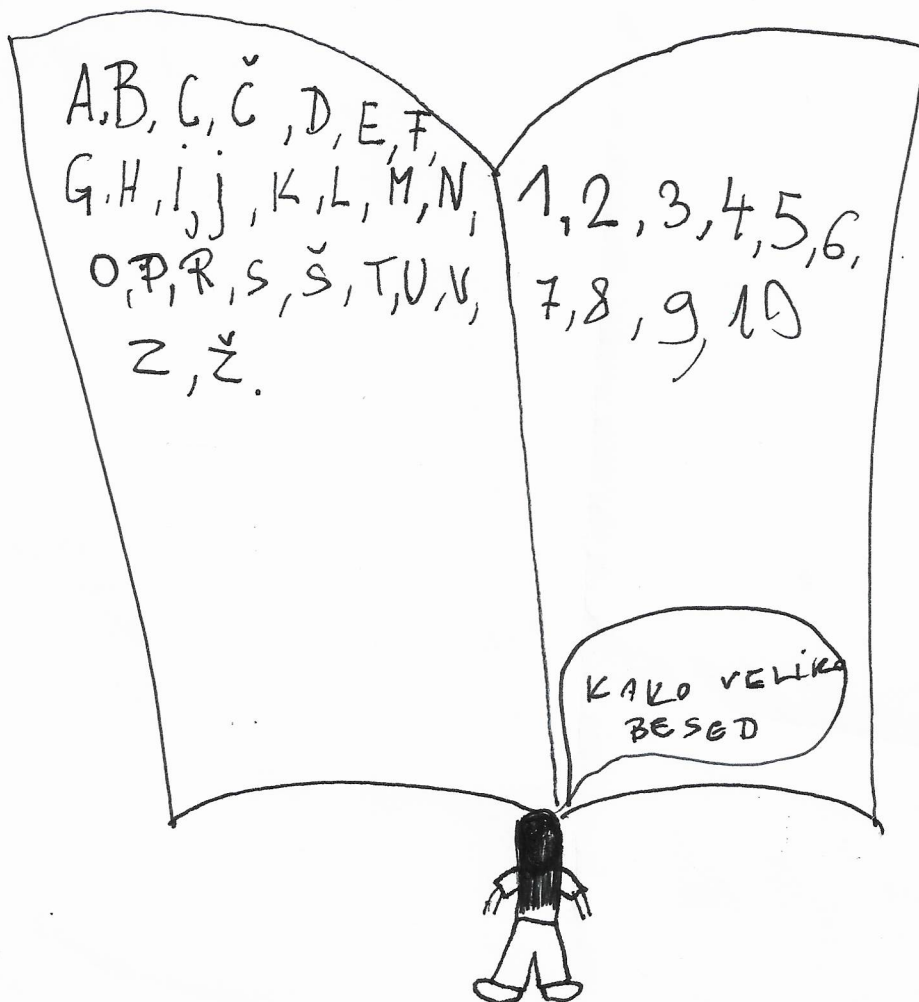 A, B, C, Č, D, E, F,
G, H, i, j, K, L, M, N,
O, P, R, S, Š, T, U, V,
Z, Ž.
1, 2, 3, 4, 5, 6,
7, 8, 9, 10
KAKO VELiKO
BESED